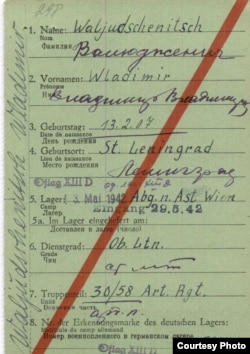 1. Name: Waljudschenitsch
Nom
Фамилия:
2. Vornamen: Wladimir
Prénoms
Имя
Владимир
3. Geburtstag: 13.2.07
Date de naissance
День рождения
4. Geburtsort: St. Leningrad
Lieu de naissance
Место рождения
Ленинград
Oflag XIII D
5. Lager: 3. Mai 1942 Abg. n. Ast Wien
Camp
Лагерь
Eingang 29.5.42
5a. Im Lager eingeliefert am:
Доставлен в лагерь (число)
6. Dienstgrad: Ob. Ltn.
Grade
Чин
7. Truppenteil: 30/58 Art. Rgt.
8. Nr. der Erkennungsmarke des deutschen Lagers:
Номер военнопленного в германском лагере
Oflag XIII D
Waljudschenitsch Wladimir
Courtesy Photo